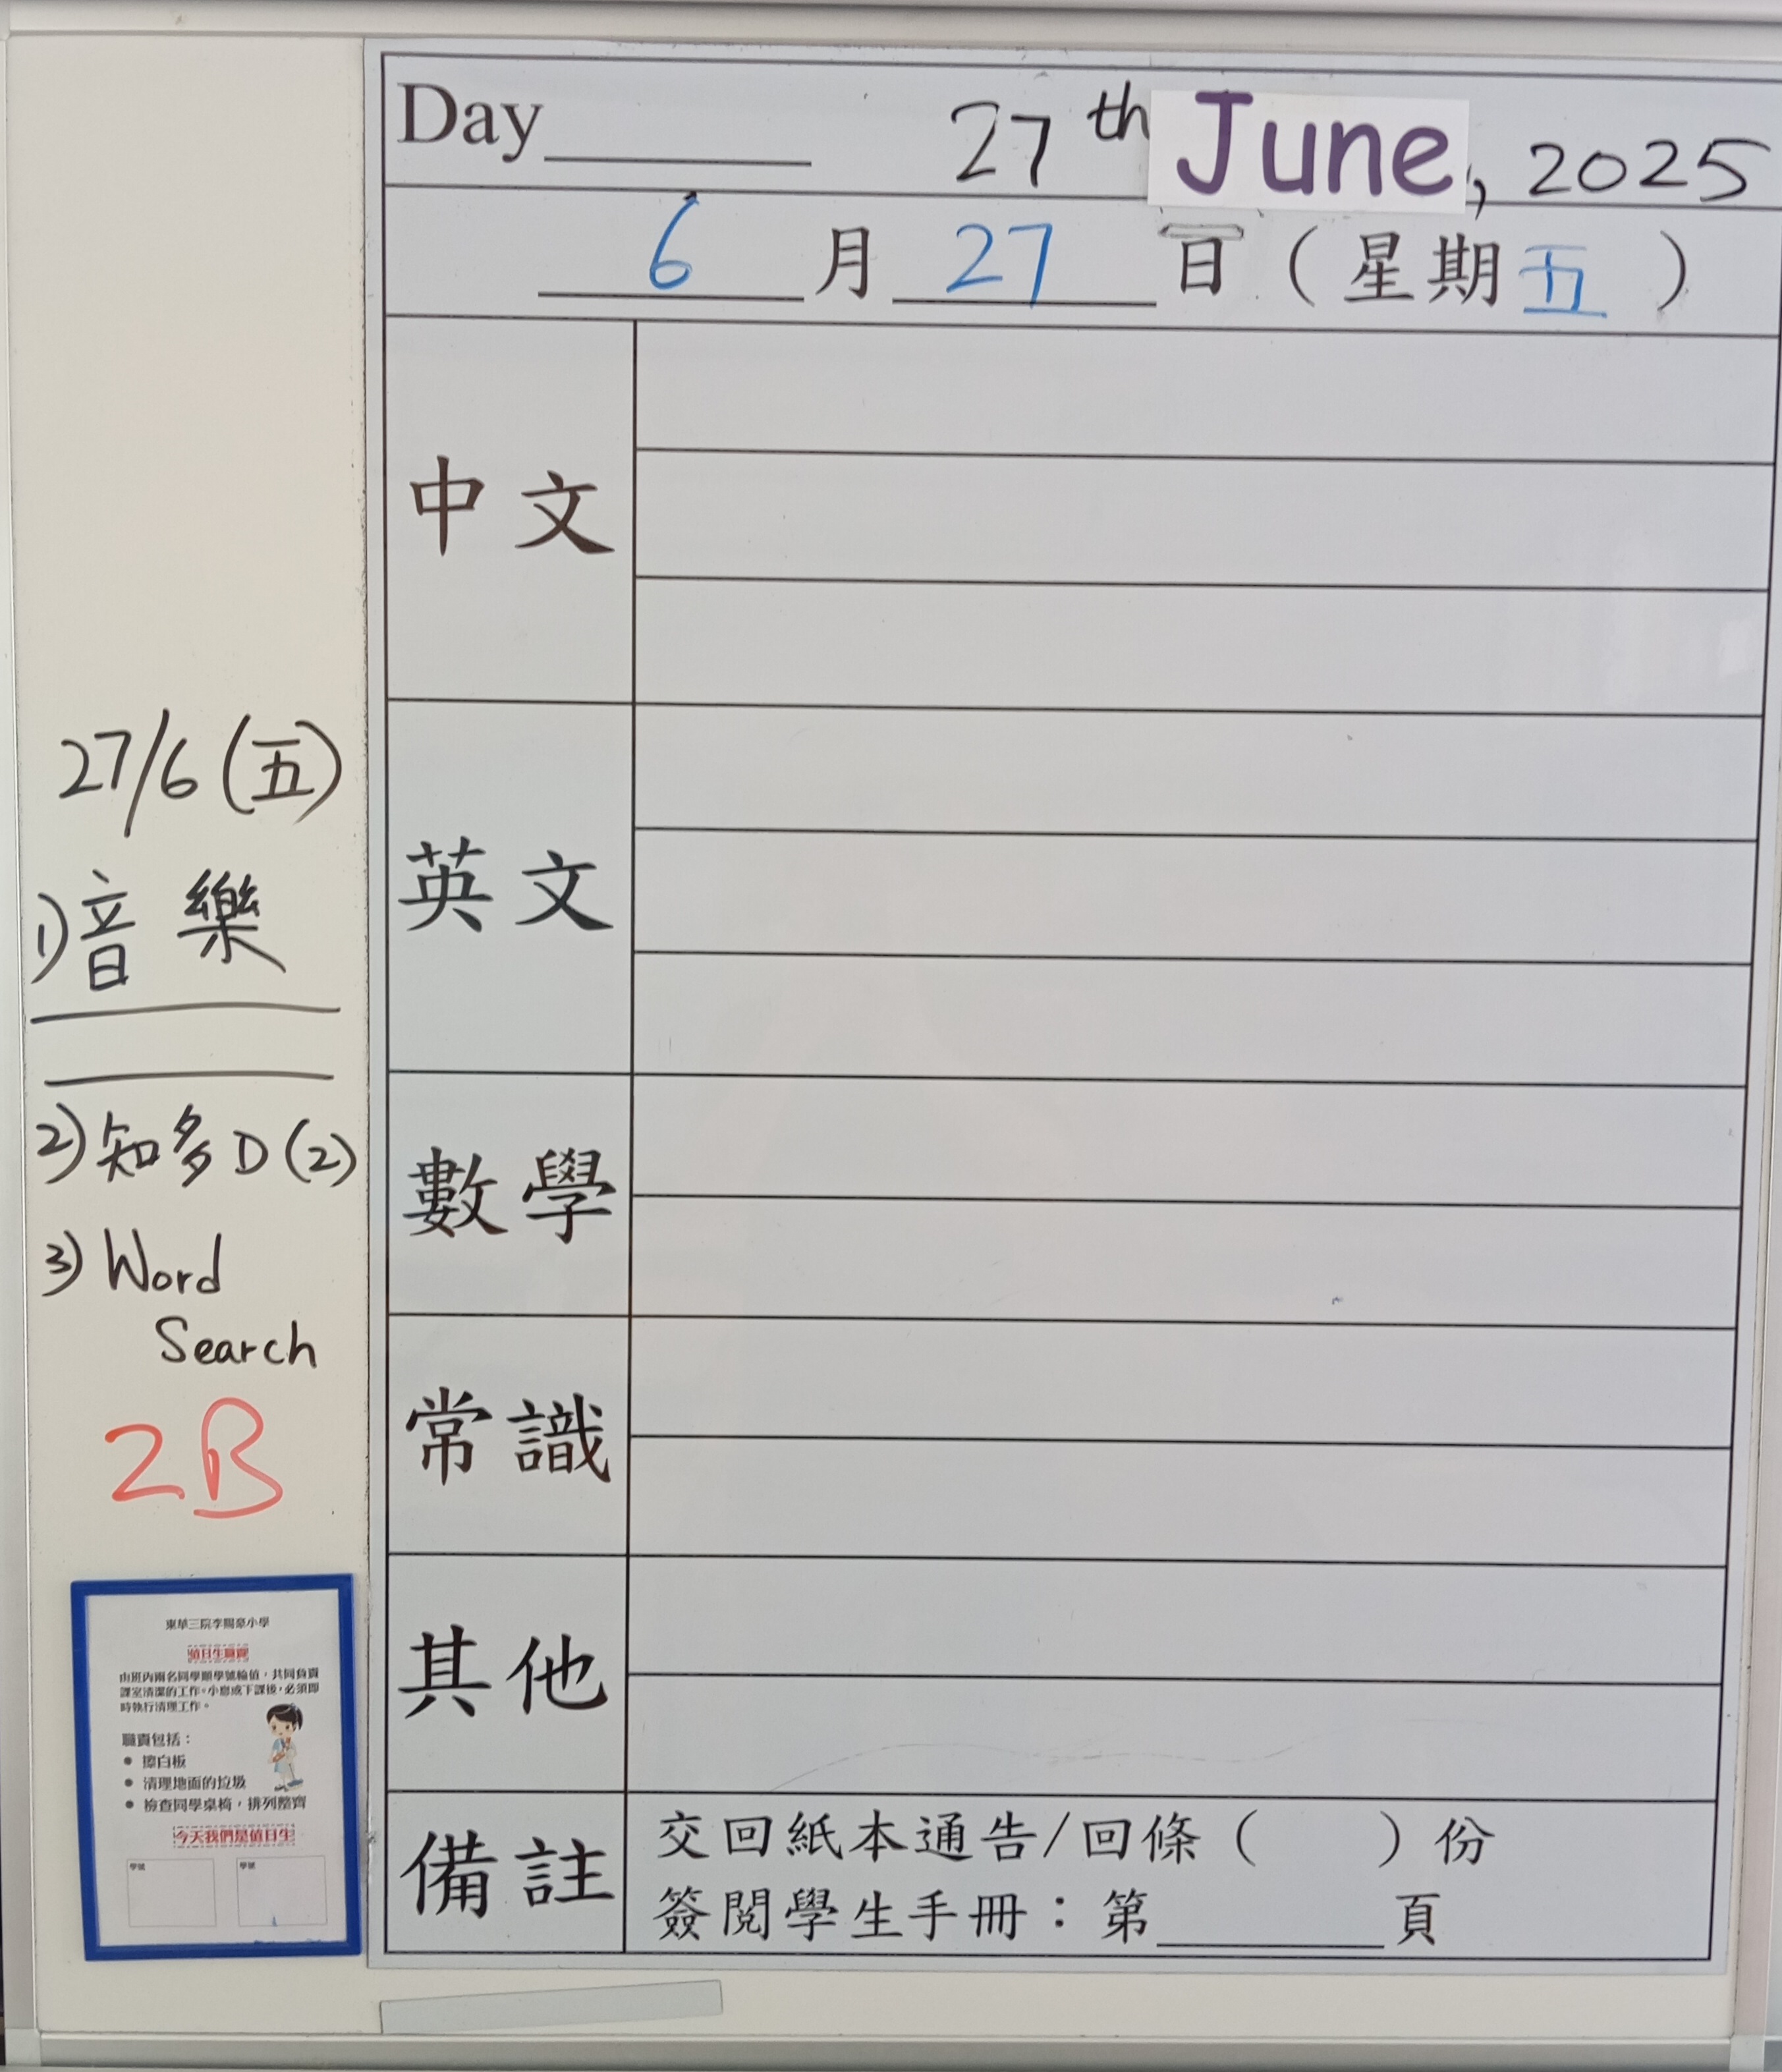 Day 27th June, 2025
6月27日(星期五)
中文
英文
數學
常識
其他
備註
交回紙本通告/回條( )份
簽閱學生手冊:第 頁
27/6(五)
1)音樂
2)知多D(2)
3)Word
Search
2B
東華三院李賜豪小學
值日生職責
由班內兩名同學順學號輪值,共同負責
課室清潔的工作。小息或下課後,必須即
時執行清理工作。
職責包括:
● 擦白板
● 清理地面的垃圾
● 檢查同學桌椅,排列整齊
今天我們是值日生
學號 學號